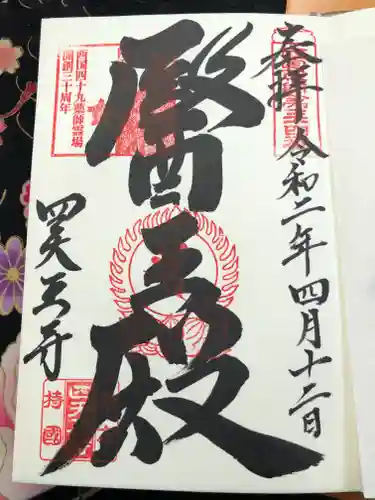 奉拝
令和二年四月十二日
醫王殿
西国四十九薬師霊場
開創三十周年
四天王寺
持國